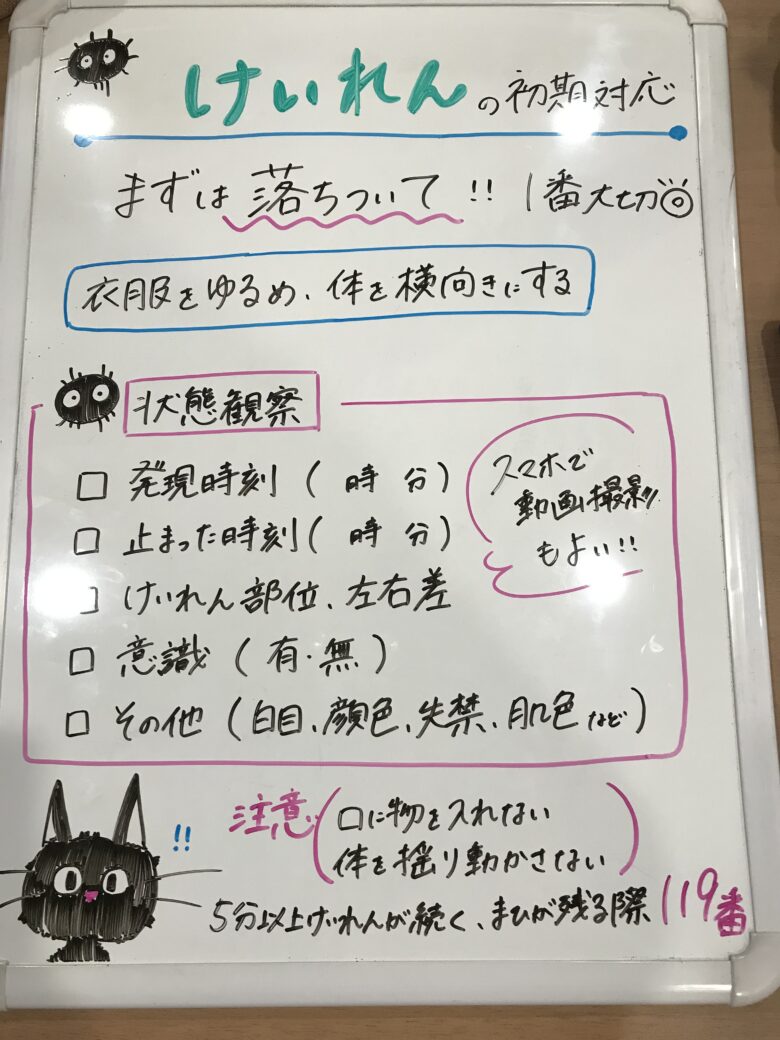 けいれんの初期対応
まずは落ちついて!! 1番大切◎
衣服をゆるめ、体を横向きにする
状態観察
□ 発現時刻 ( 時 分)
□ 止まった時刻( 時 分)
□ けいれん部位、左右差
□ 意識 ( 有・無 )
□ その他 (白目、顔色、失禁、肌色 など)
スマホで
動画撮影
もよい!!
!!
注意
口に物を入れない
体を揺り動かさない
5分以上けいれんが続く、まひが残る際 119番